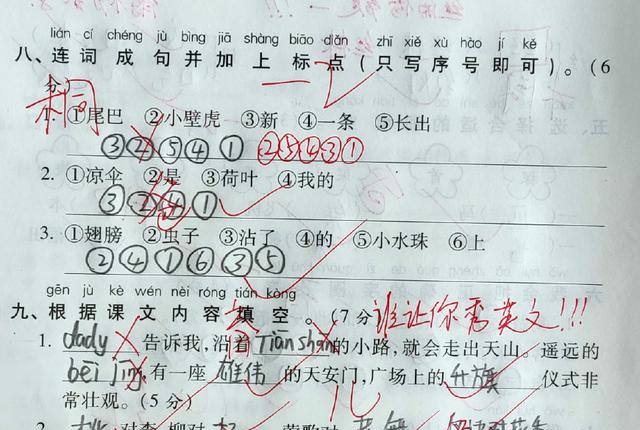 lián cí chéng jù bìng jiā shàng biāo diǎn zhǐ xiě xù hào jí kě
八、连词成句并加上标点(只写序号即可)。(6
分)
1. ①尾巴 ②小壁虎 ③新 ④一条 ⑤长出
③②⑤④① ②⑤④③①
2. ①凉伞 ②是 ③荷叶 ④我的
③②④①
3. ①翅膀 ②虫子 ③沾了 ④的 ⑤小水珠 ⑥上
②④①⑥③⑤
gēn jù kè wén nèi róng tián kòng
九、根据课文内容填空。(7分 谁让你秀英文!!!
1. dady 告诉我,沿着 Tiānshān 的小路,就会走出天山。遥远的
běi jīng 有一座 雄伟 的天安门,广场上的 升旗 仪式非
常壮观。(5分)